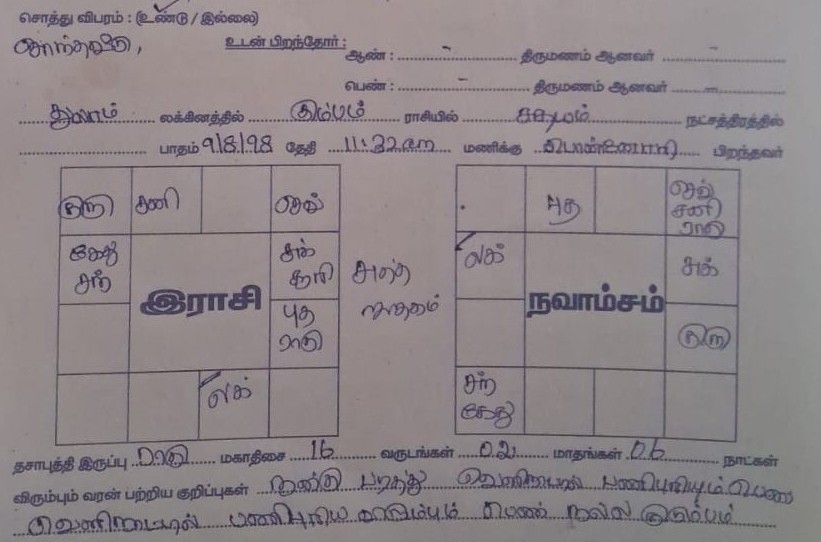 சொத்து விபரம் : (உண்டு / இல்லை)
உடன் பிறந்தோர் : ஆண் : – திருமணம் ஆனவர் –
பெண் : – திருமணம் ஆனவர் –
துலாம் லக்கினத்தில் கும்பம் ராசியில் சதயம் நட்சத்திரத்தில்
பாதம் 9/8/98 தேதி 11:32am மணிக்கு பொன்னேரி பிறந்தவர்
குரு சனி செவ்
கேது சந் சுக் சூரி
இராசி
புத ராகு
லக்
சுத்த ஜாதகம்
புத செவ் சனி ராகு
லக் சுக்
நவாம்சம்
குரு
சந் கேது
தசாபுத்தி இருப்பு ராகு மகாதிசை 16 வருடங்கள் 02 மாதங்கள் 06 நாட்கள்
விரும்பும் வரன் பற்றிய குறிப்புகள் நன்கு படித்து வெளிநாட்டில் பணிபுரியும் பெண்
வெளிநாட்டில் பணிபுரிய விரும்பும் பெண் நல்ல குடும்பம்